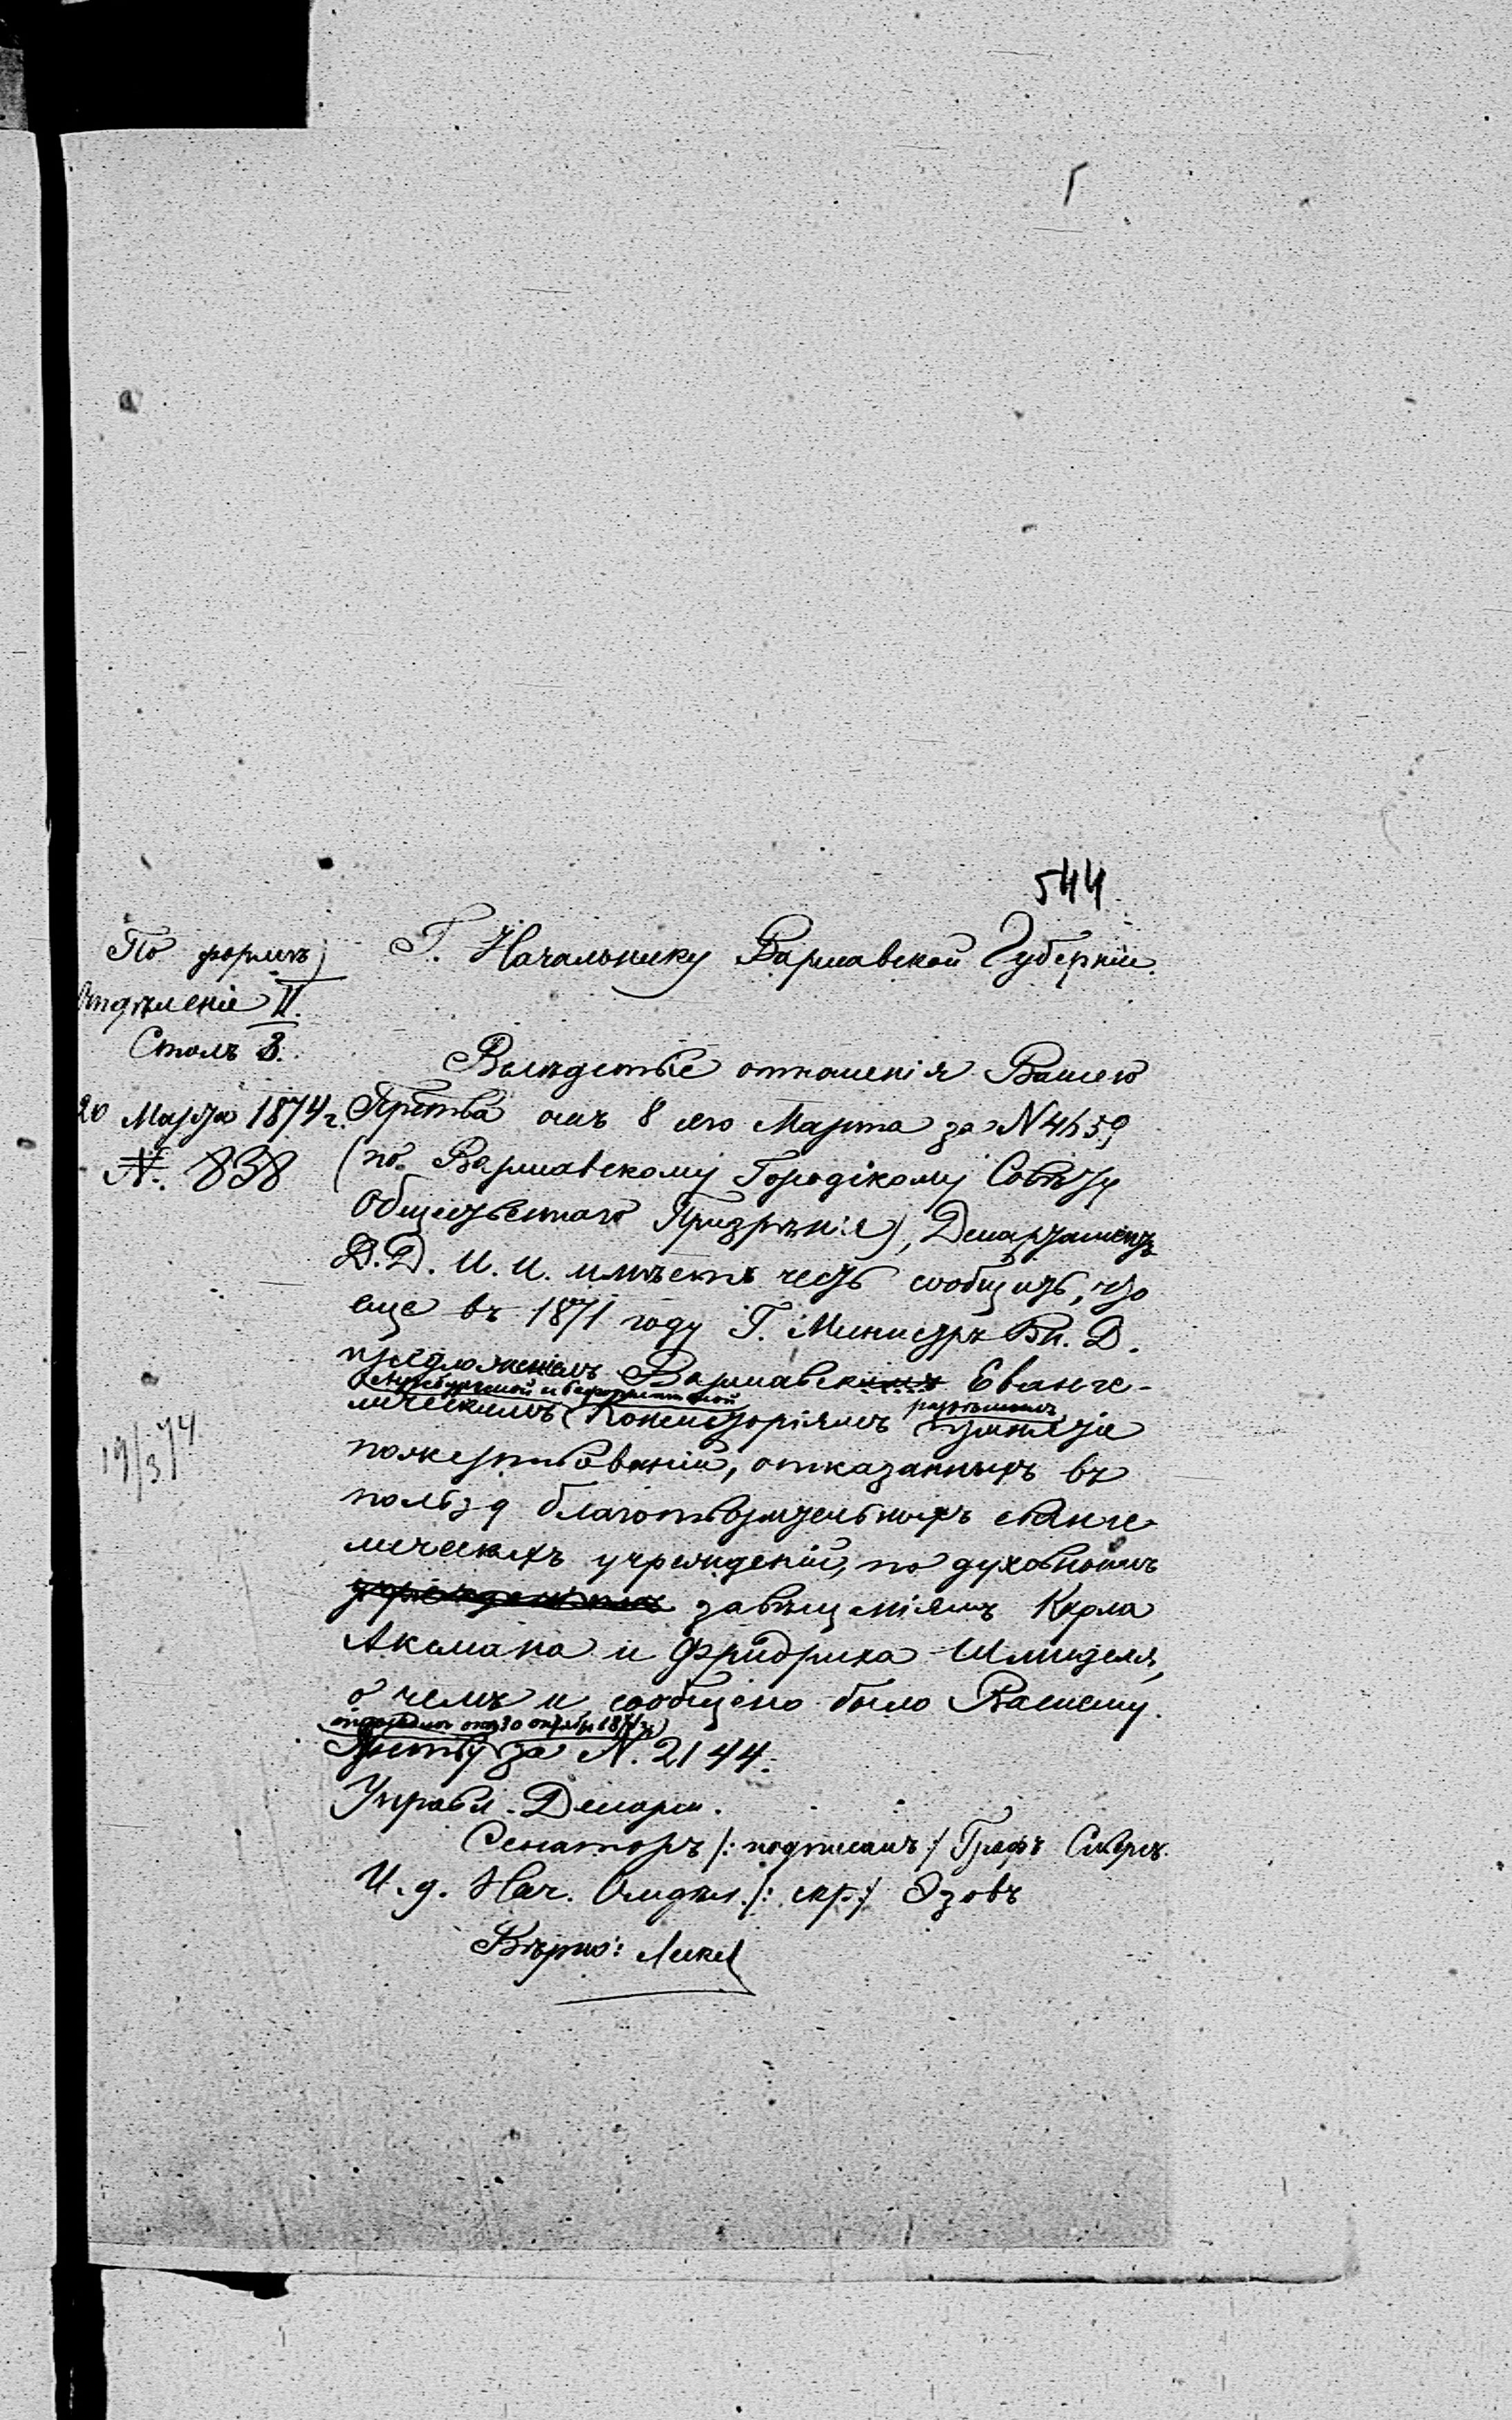 544
По формѣ
Отдѣленіе II.
Столъ 3.
20 Марта 1874 г.
№. 838
19/3 74
Г. Начальнику Варшавской Губерніи.
Вслѣдствіе отношенія Вашего
Пр̃ства отъ 8 сего Марта за N 4659
(по Варшавскому Городскому Совѣту
Общественнаго Призрѣнія), Департаментъ
Д. Д. И. И. имѣетъ честь сообщить, что
еще въ 1871 году Г. Министръ Вн. Д.
предложеніемъ Варшавскимъ Еванге-
Аугсбургской и Реформатской
разрѣшилъ
лическимъ Консисторіямъ принятіе
пожертвованій, отказанныхъ въ
пользу благотворительныхъ еванге-
лическихъ учрежденій, по духовнымъ
учрежденіямъ завѣщаніямъ Карла
Аксмана и Фридриха Шмиделя,
о чемъ и сообщено было Вашему
отъ 30 октября 1871 г.
Пр̃ству за N. 2144.
Управл. Департ.
Сенаторъ /: подписалъ :/ Графъ Сиверсъ.
И. д. Нач. Отдѣл. /: скр. :/ Эзовъ
Вѣрно: